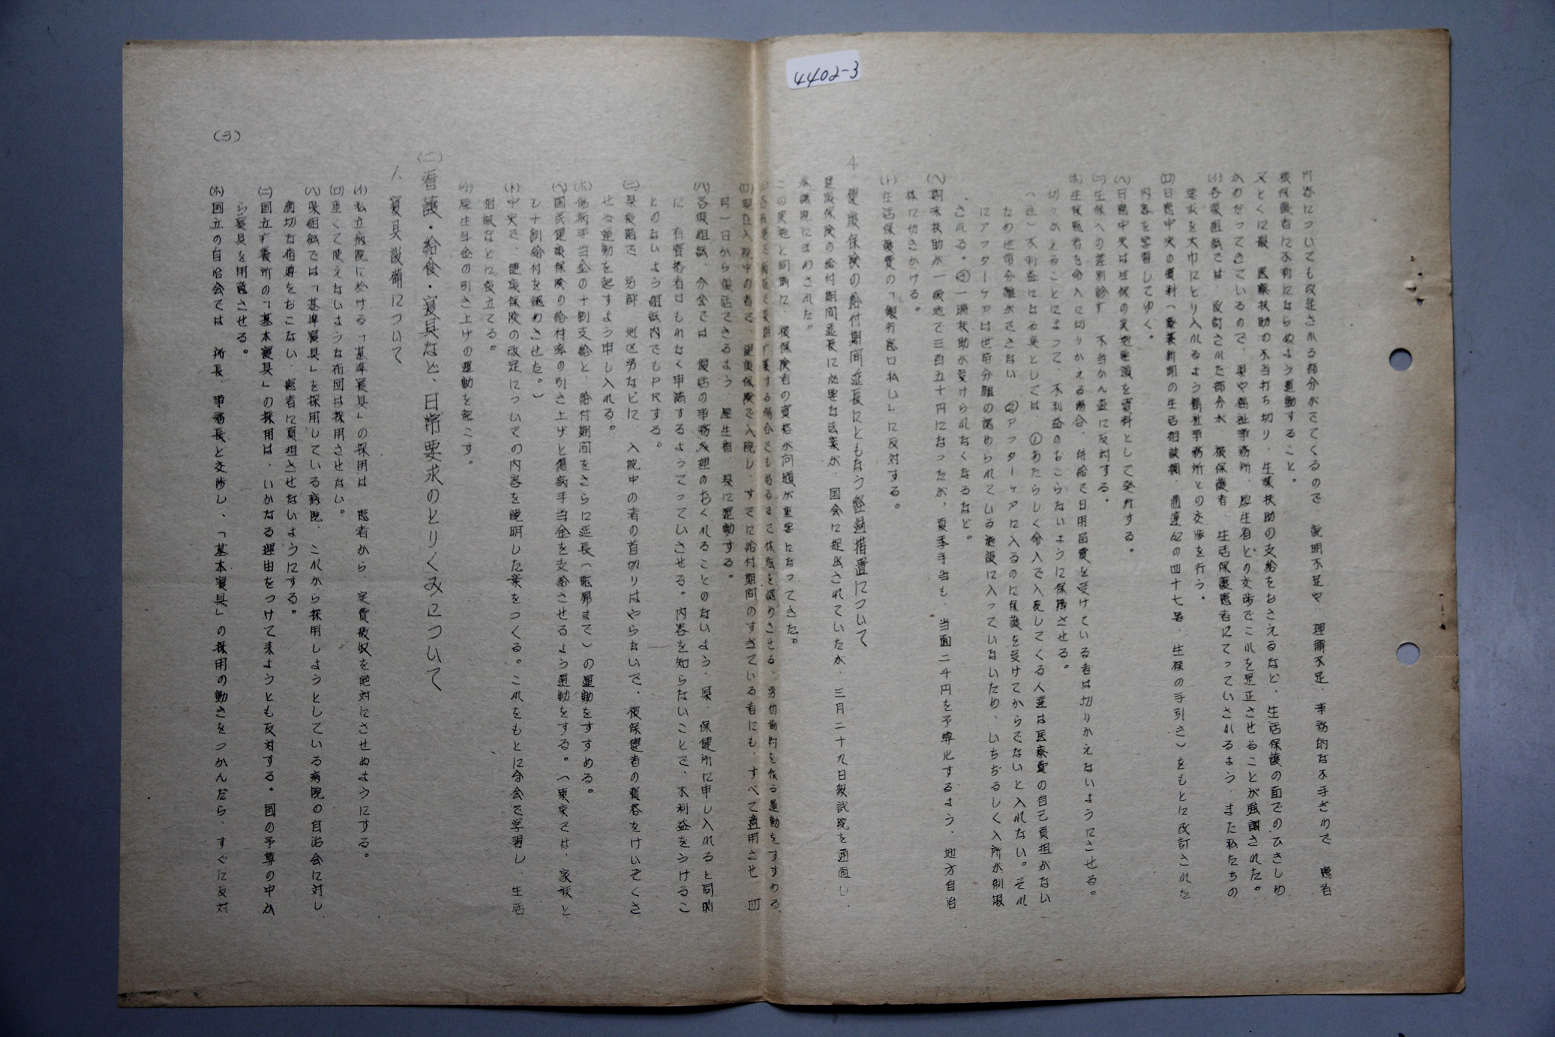 4402-3
内容についても改正される部分がでてくるので 説明不足や、理解不足、事務的な不手ぎわで 患者
被保護者に不利にならぬよう運動すること。
又とくに最近 医療扶助の不当打ち切り、生活扶助の支給をおさえるなど、生活保護の面でのひきしめ
がめだってきているので、県や福祉事務所、厚生省との交渉でこれを是正させることが強調された。
(イ)各県組織では 改訂された部分が 被保護者 生活保護患者にてっていされるよう また私たちの
要求を大巾にとり入れるよう福祉事務所との交渉を行う。
(ロ)日患中央の資料(医療新聞の生活相談欄、 の四十七号、生保の手引き)をもとに改訂された
内容を学習してゆく。
(ハ)日患中央は生保の実施要領を資料として発行する。
(ニ)生保への差別診す 不当かん査に反対する。
(ホ)生保患者を命入に切りかえる場合、併給で日用品費を受けている者は切りかえないようにさせる。
切りかえることによって、不利益のおこらないように保障させる。
(注)不利益になる要素としては ①あたらしく命入で入院してくる人達は医療費の自己負担がない
ため世帯分離ができない ②アフターケアに入るのに保護を受けてからでないと入れない。それ
にアフターケアは世帯分離の認められている施設に入っていないため、いちぢるしく入所が制限
される。③一時扶助が受けられなくなるなど。
(ヘ)期末扶助が一級地で三百五十円になったが、夏季手当も、当面二千円を予算化するよう、地方自治
体に働きかける。
(ト)生活保護費の「銀行窓口払い」に反対する。
4 健康保険の給付期間延長にともなう経過措置について
健康保険の給付期間延長に必要な法案が、国会に提出されていたが、三月二十九日衆議院を通過し、
参議院にまわされた。
この実施と同時に、被保険者の資格が問題が重要になってきた。
(ロ)現在入院中の者で、健康保険で入院し、すでに給付期間のすぎている者にも、すべて適用させ 四
月一日から復活できるよう、厚生省、県に運動する。
(ハ)各県組織、分会では 復活の事務処理のおくれることのないよう、県、保健所に申し入れると同時
に、有資格者はもれなく申請するようてっていさせる。内容を知らないことで、不利益をうけるこ
とのないよう組織内でもPRする。
(ニ)県段階で、労評、地区労などに、入院中の者の首切りはやらないで、被保健者の資格をけいぞくさ
せる運動を起すよう申し入れる。
(ホ)傷病手当金の十割支給と、給付期間をさらに延長(転帰まで)の運動をすすめる。
(ヘ)国民健康保険の給付率の引き上げと傷病手当金を支給させるよう運動をする。(東京では、家族と
し十割給付を認めさせた。)
(ト)中央で、健康保険の改定についての内容を説明した案をつくる。これをもとに分会で学習し、生活
相談などに役立てる。
(チ)厚生年金の引き上げの運動を起こす。
(二)看護・給食・寝具など、日常要求のとりくみについて
1、寝具設備について
(イ)私立病院における「基準寝具」の採用は 患者から、実費徴収を絶対にさせぬようにする。
(ロ)重くて使えないような布団は採用させない。
(ハ)県組織では「基準寝具」を採用している病院、これから採用しようとしている病院の自治会に対し、
適切な指導をおこない、患者に負担させないようにする。
(ニ)国立す養所の「基本寝具」の採用は、いかなる理由をつけて来ようとも反対する。国の予算の中か
ら寝具を用意させる。
(ホ)国立の自治会では 所長、事務長と交渉し、「基本寝具」の採用の動きをつかんだら すぐに反対
(3)